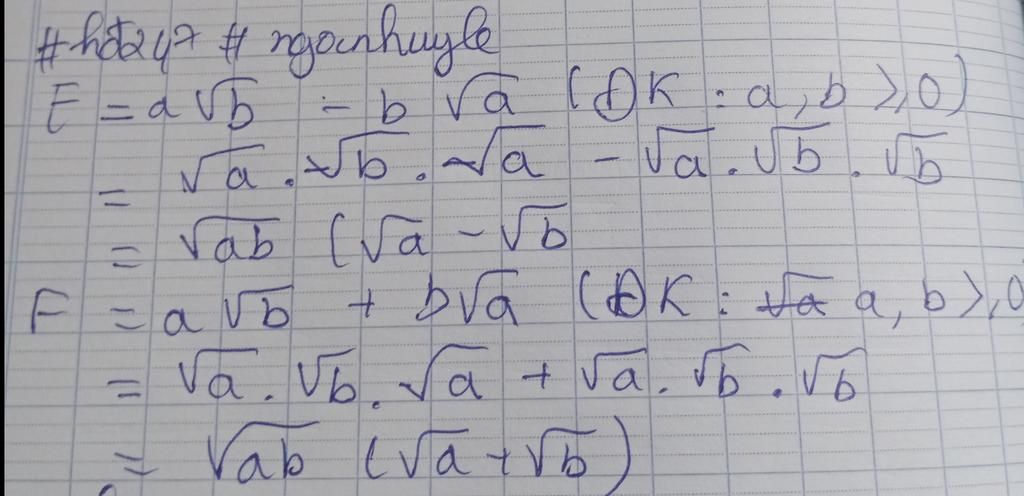 #hdt247 # ngocnhuyle
E = a √b - b √a (ĐK : a, b ≥ 0)
= √a . √b . √a - √a . √b . √b
= √ab (√a - √b
F = a √b + b√a (ĐK : a, b ≥ 0
= √a . √b . √a + √a . √b . √b
= √ab (√a + √b)